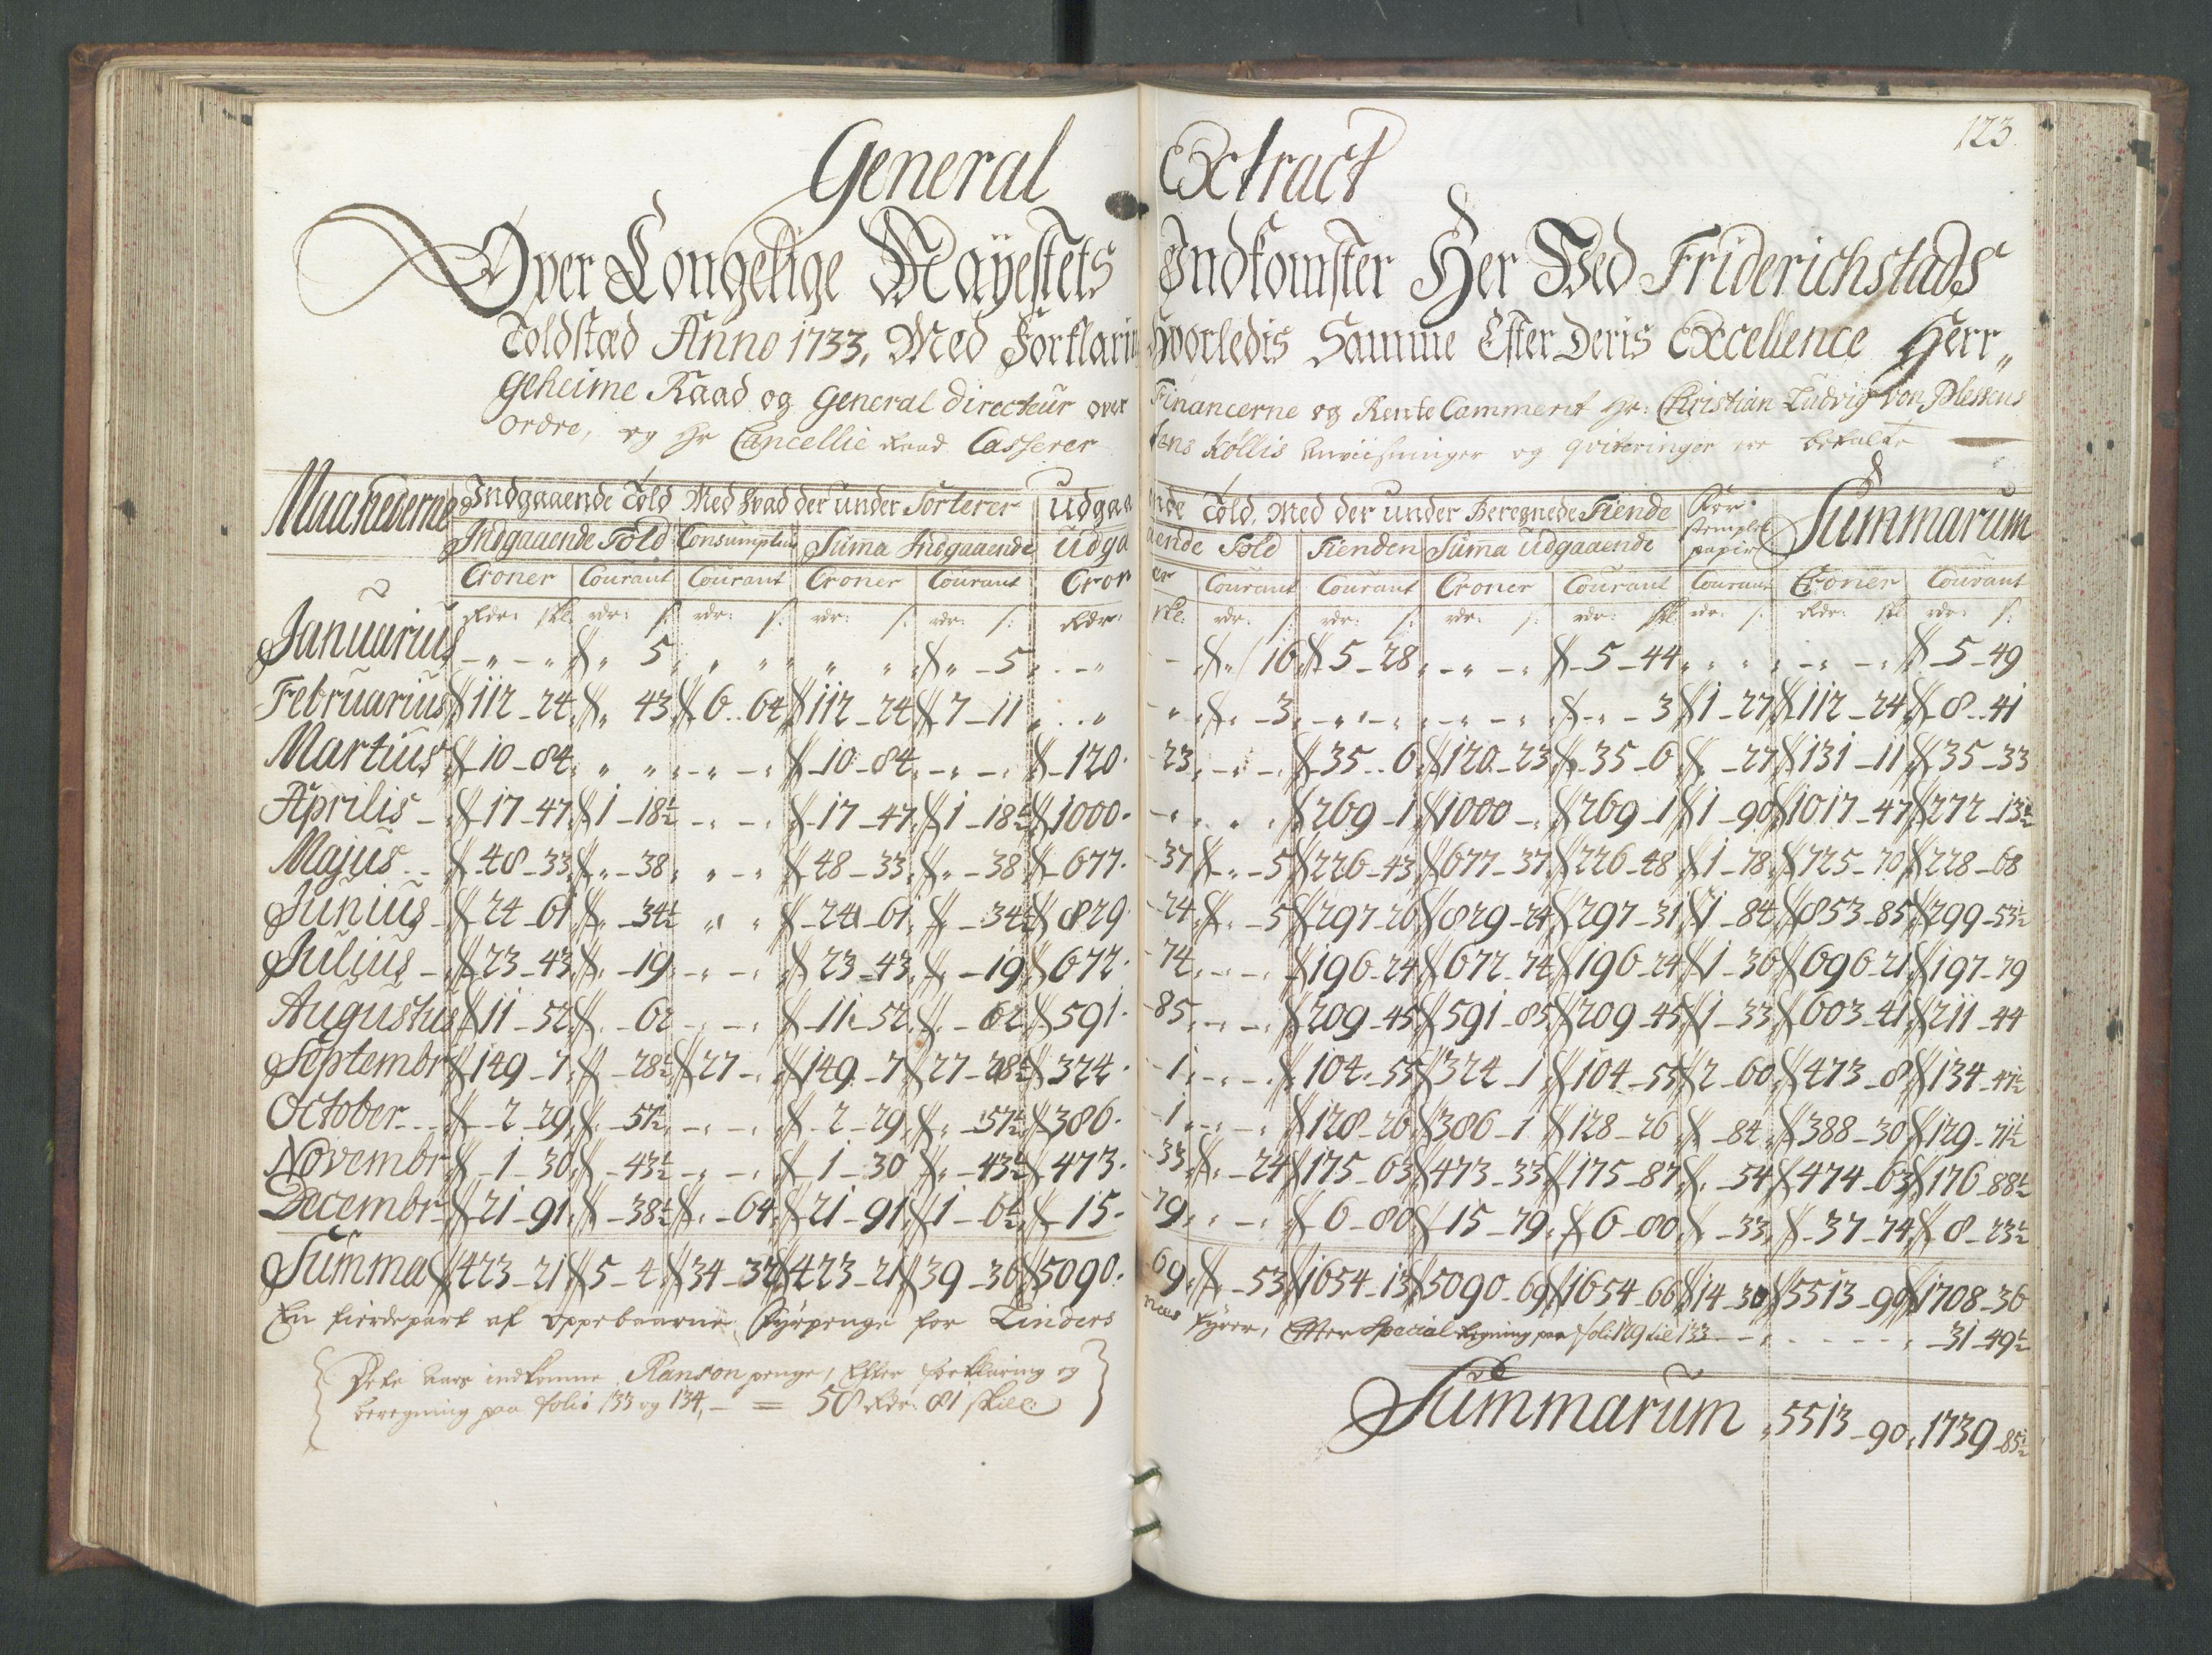 123.
General Extract
Over Kongelige Mayestets Indkomster Her Ved Friderichstads
Toldstæd Anno 1733, Med Forklaring Hvorledis Samme Efter Deris Excellence Herr„
Geheime Raad og General Directeur over Financerne og Rente Cammerit Hr: Christian Ludvig von Plessens
Ordre, og Hr Cancellie Raad Casserer Jens Köllis Anviisninger og qviteringer ere betalte
Maanederne Indgaaende Told Med hvad der under Sorterer Udgaaende Told, Med der under Beregnede Tiende For stemplet papir Summarum
Indgaaende Told Consumption Summa Indgaaende Udgaaende Told Tienden Summa Udgaaende
Croner Courant Courant Croner Courant Croner Courant Courant Croner Courant Courant Croner Courant
Rdr: skl: rdr: s: rdr: s: rdr: s: rdr: s: Rdr: skl: rdr: s: rdr: s: rdr: s: rdr: skl rdr: s: Rdr: skl rdr: s:
Januarius 5 5 16 5-28 5-44 5-49
Februarius 112-24 43 6-64 112-24 7-11 3 3 1-27 112-24 8-41
Martius 10-84 10-84 120-23 35-6 120-23 35-6 27 131-11 35-33
Aprilis 17-47 1-18½ 17-47 1-18½ 1000 269-1 1000 269-1 1-90 1017-47 272-13½
Majus 48-33 38 48-33 38 677-37 5 226-43 677-37 226-48 1-78 725-70 228-68
Junius 24-61 34½ 24-61 34½ 829-24 5 297-26 829-24 297-31 1-84 853-85 299-53½
Julius 23-43 19 23-43 19 672-74 196-24 672-74 196-24 1-36 696-21 197-79
Augustus 11-52 62 11-52 62 591-85 209-45 591-85 209-45 1-33 603-41 211-44
Septembr 149-7 28½ 27 149-7 27-28½ 324-1 104-55 324-1 104-55 2-60 473-8 134-47½
October 2-29 57½ 2-29 57½ 386-1 128-26 386-1 128-26 84 388-30 129-71½
Novembr 1-30 43½ 1-30 43½ 473-33 24 175-63 473-33 175-87 54 474-63 176-88½
Decembr 21-91 38½ 64 21-91 1-6½ 15-79 6-80 15-79 6-80 33 37-74 8-23½
Summa 423-21 5-4 34-32 423-21 39-36 5090-69 53 1654-13 5090-69 1654-66 14-30 5513-90 1708-36
En fierdepart af oppebaarne Fyrpenge for Linders næs Fyrer, Efter Special Regning paa folio 129 til 133 31-49½
Dette Aars indkomne Ranson penge, Efter forklaring og
beregning paa folio 133 og 134, = 58 Rdr: 81 skill:
Summarum 5513-90 1739-85½